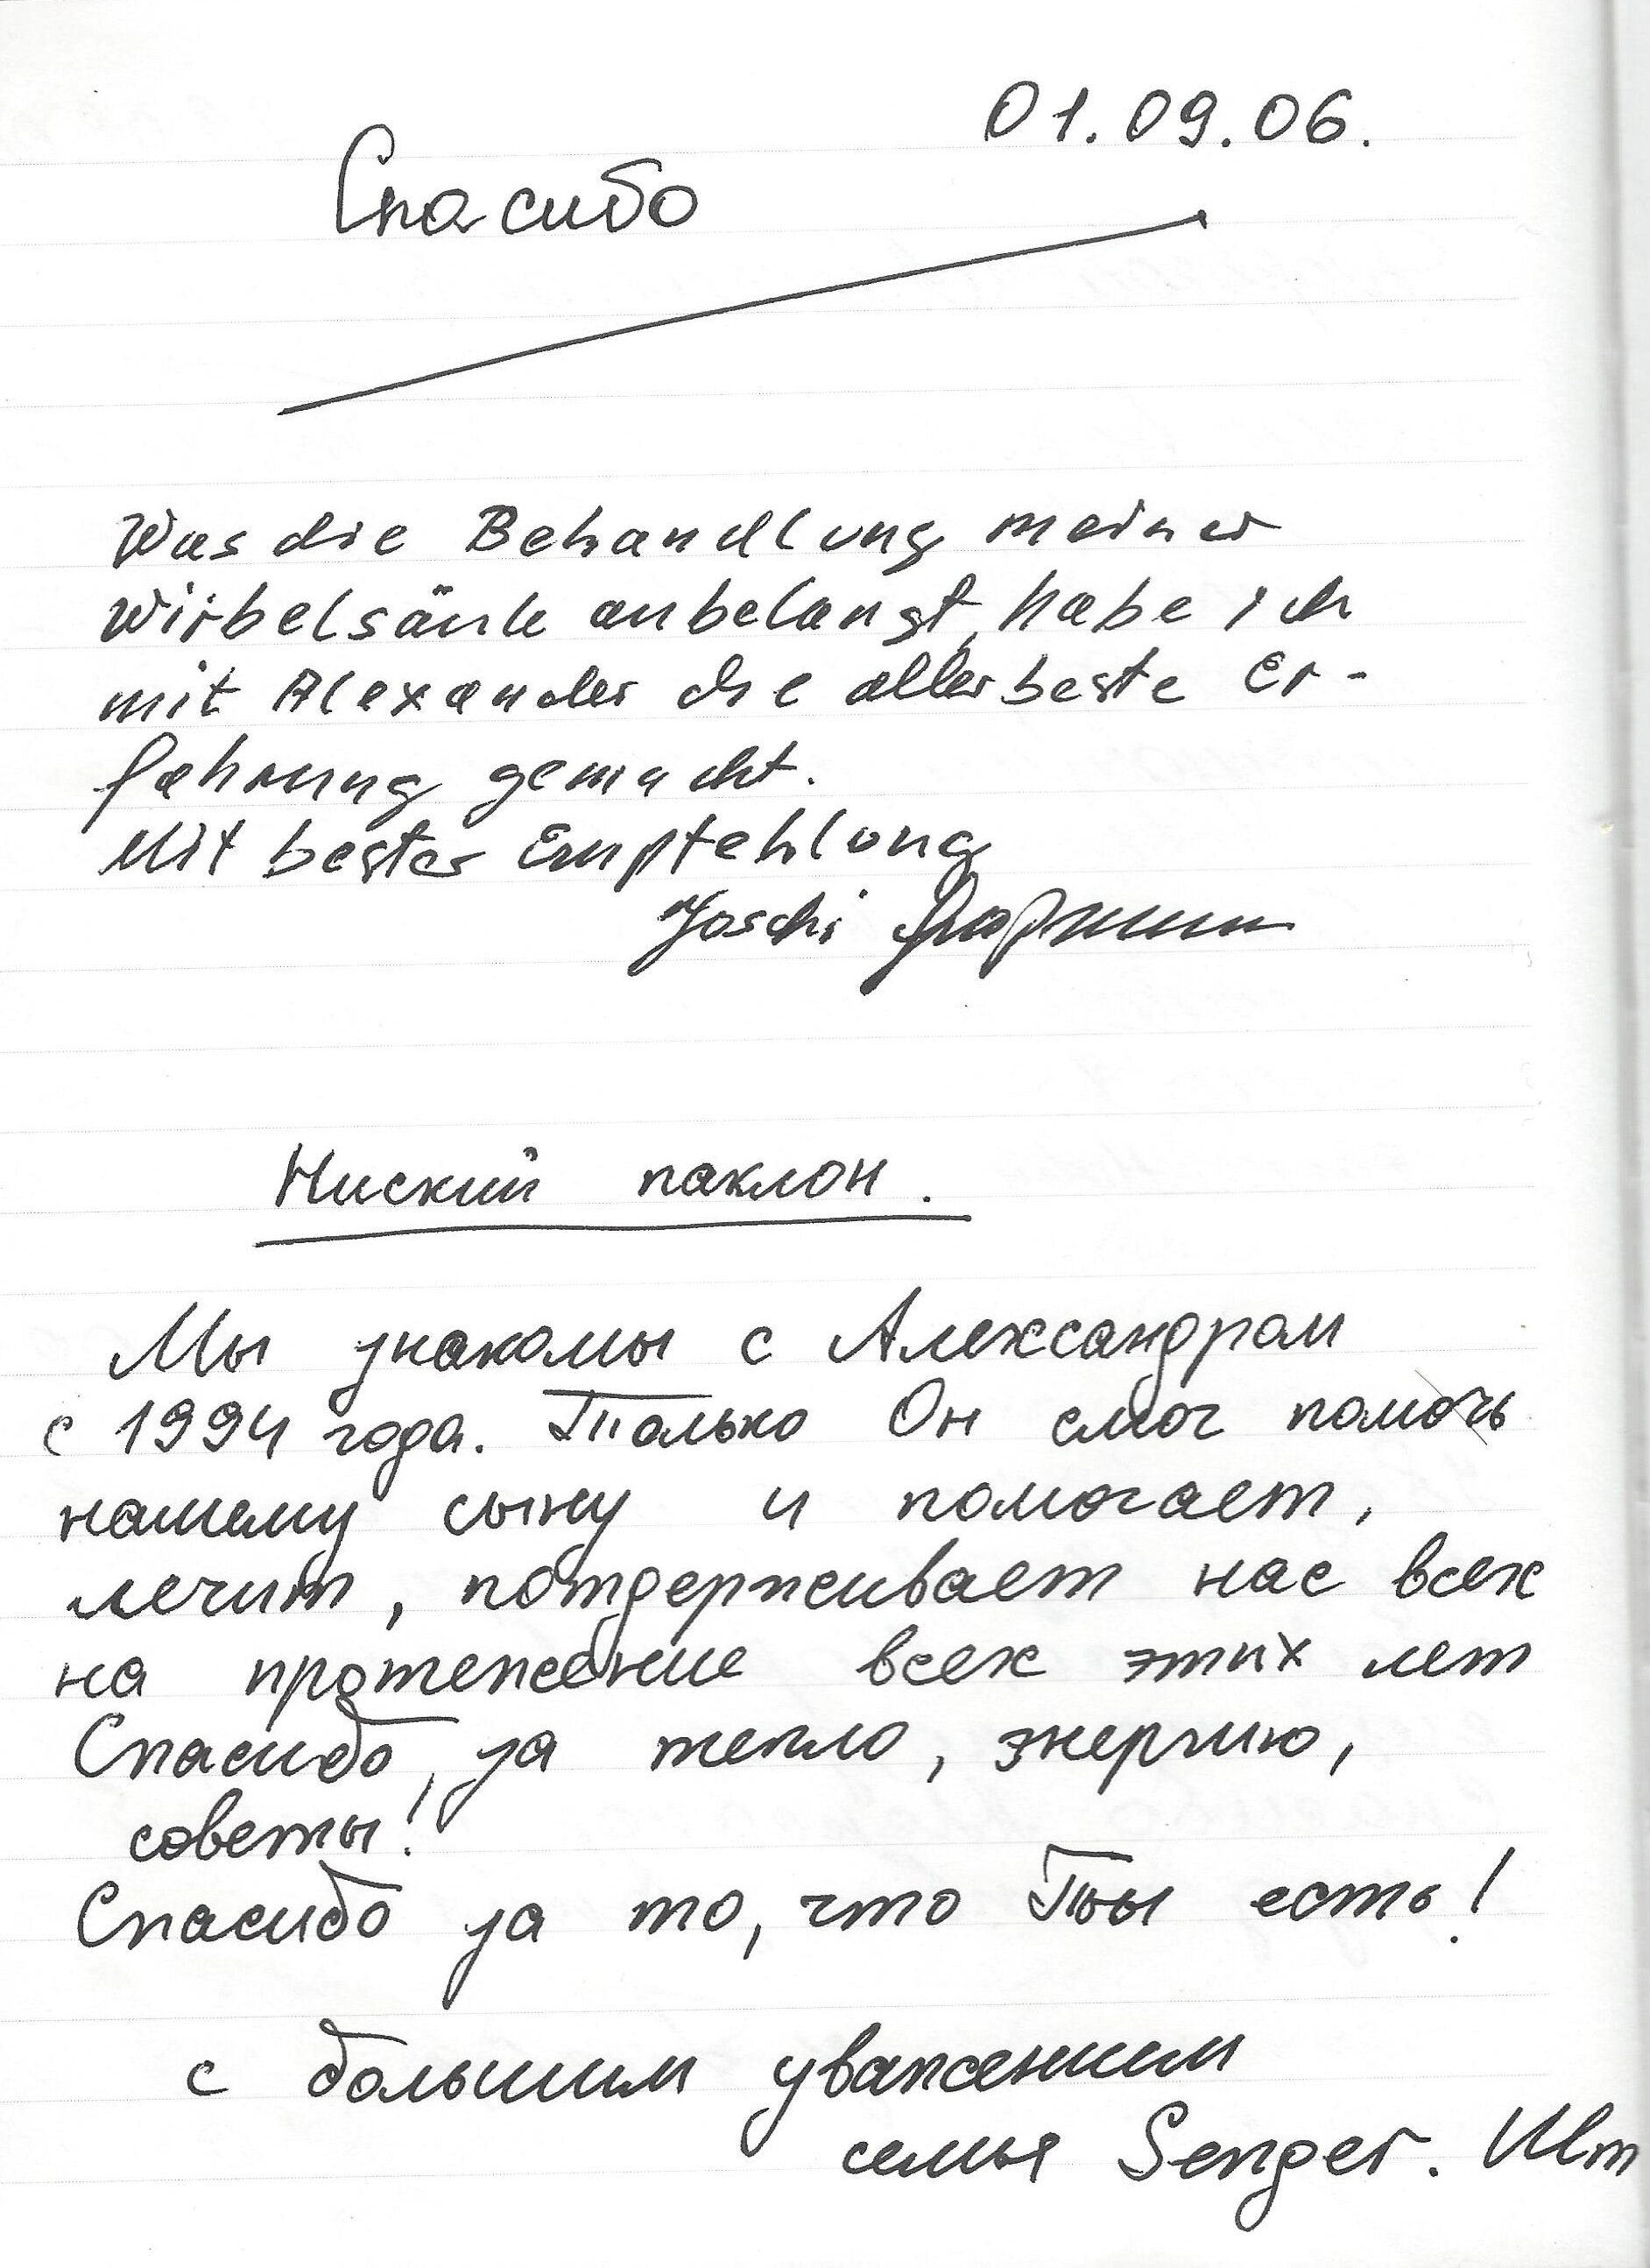 01.09.06.
Спасибо
Was die Behandlung meiner
Wirbelsäule anbelangt, habe ich
mit Alexander die allerbeste Er-
fahrung gemacht.
Mit bester Empfehlung
Joschi
Ниский паклон.
Мы знакомы с Александром
с 1994 года. Только Он смог помочь
нашему сыну и помогает,
лечит, потдерживает нас всех
на протежение всех этих лет
Спасибо, за тепло, энергию,
советы!
Спасибо за то, что Ты есть!
с большим уважением
семья Senger. Шт